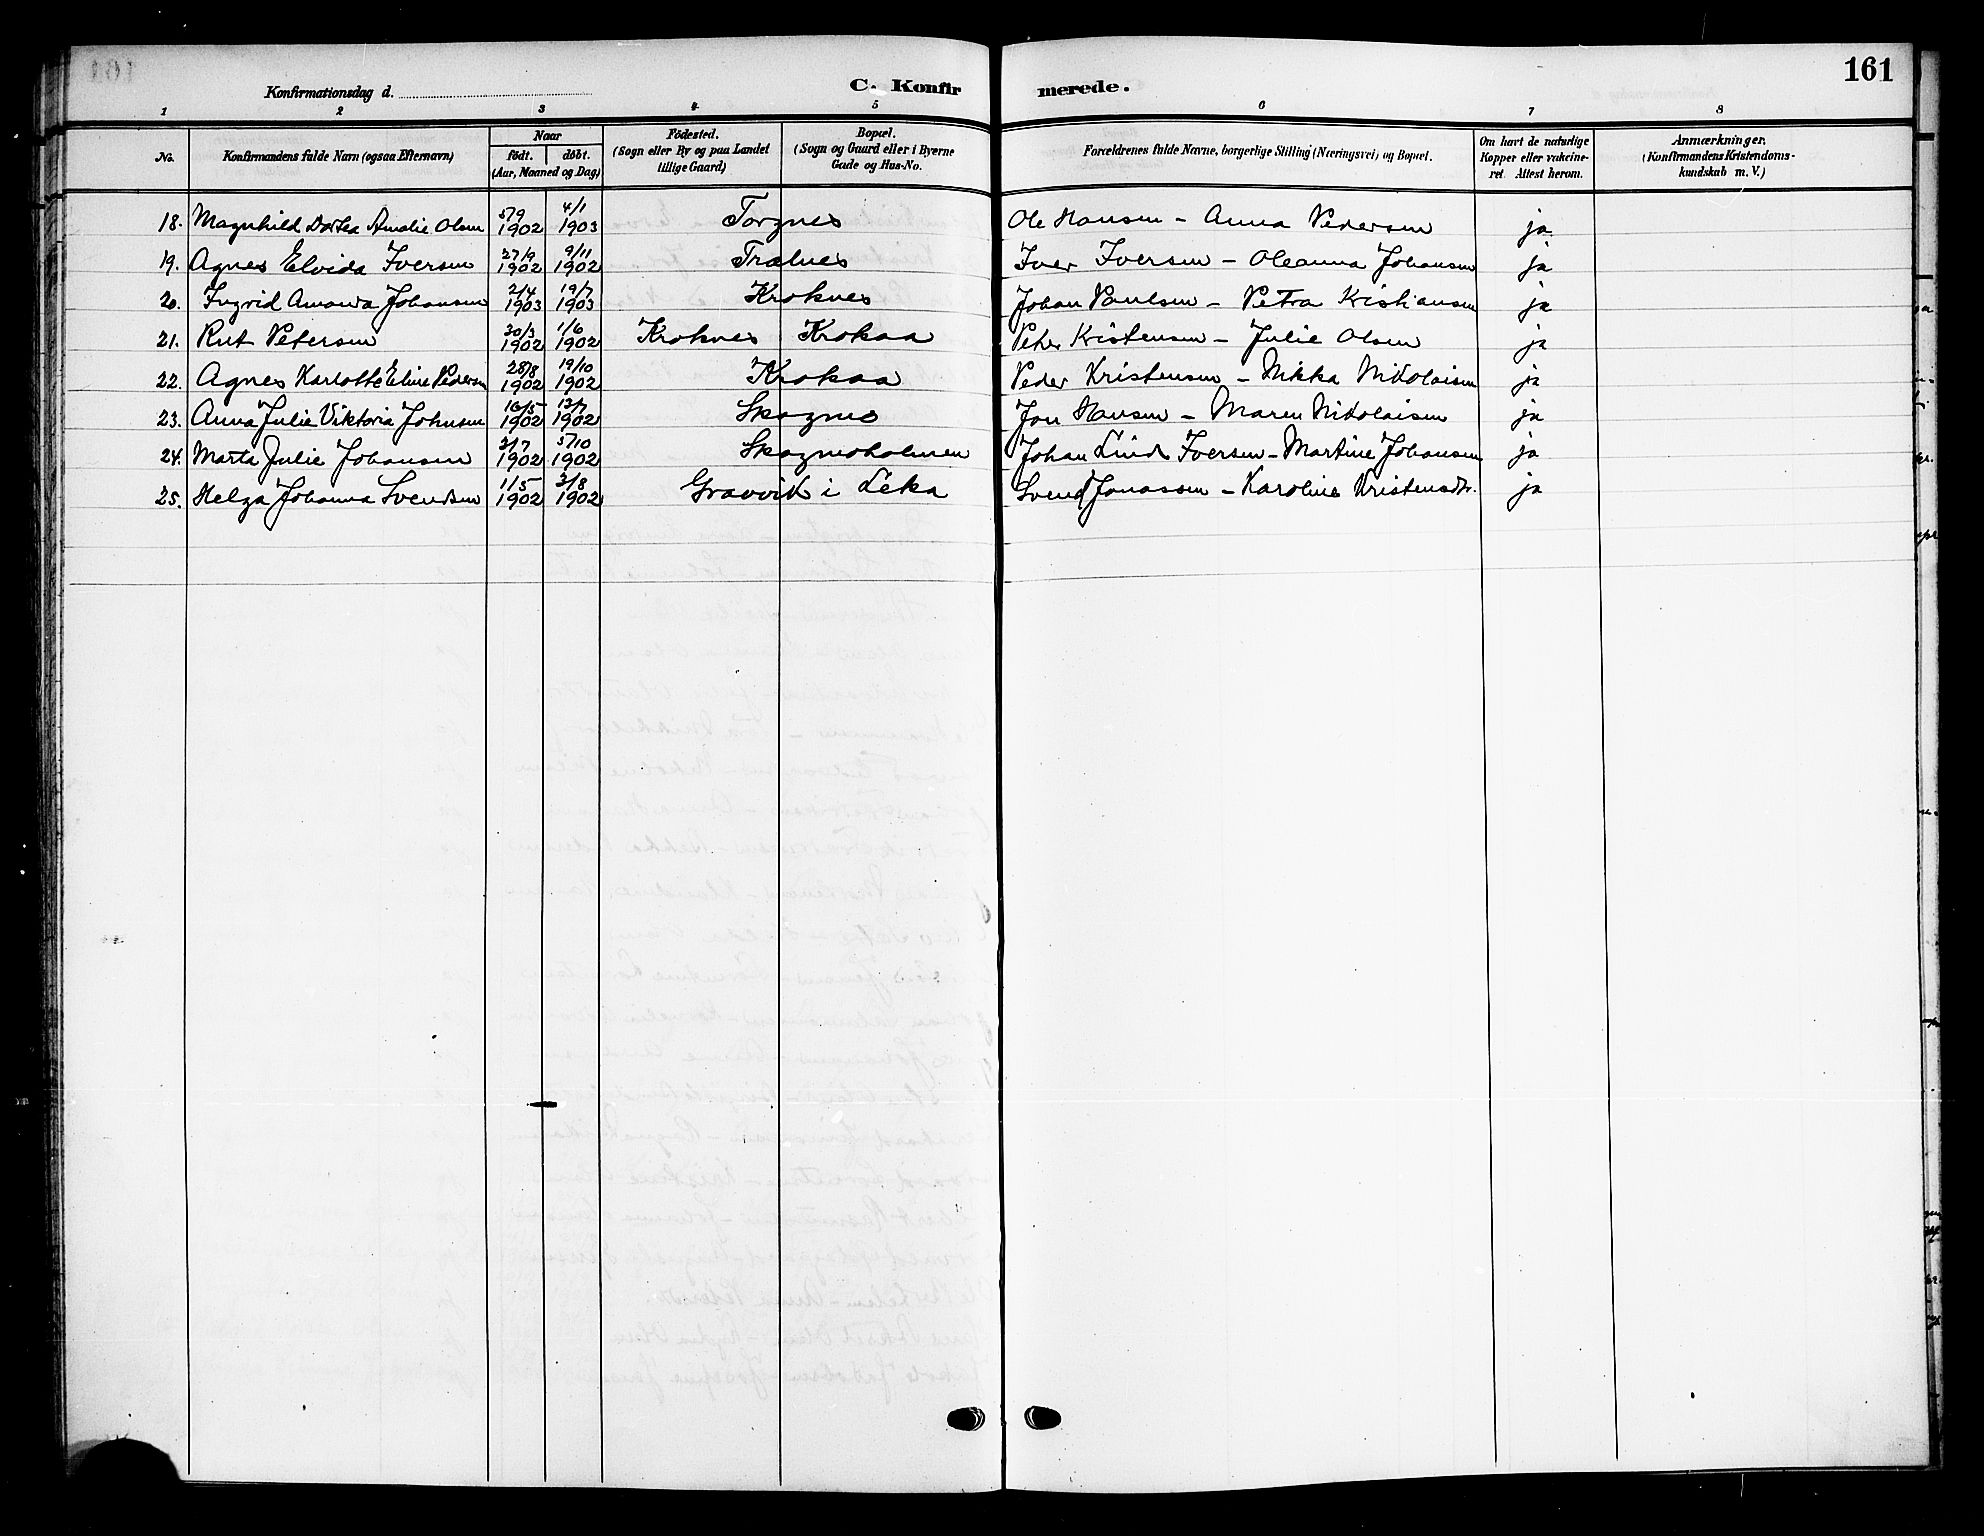 161
Konfirmationsdag d.
C. Konfirmerede.
1 2 3 4 5 6 7 8
No. Konfirmandens fulde Navn (ogsaa Efternavn) Naar født. døbt. (Aar, Maaned og Dag) Fødested. (Sogn eller By og paa Landet tillige Gaard) Bopæl. (Sogn og Gaard eller i Byerne Gade og Hus-No. Forældrenes fulde Navne, borgerlige Stilling (Næringsvei) og Bopæl. Om havt de naturlige Kopper eller vakcineret. Attest herom. Anmærkninger. (Konfirmandens Kristendomskundskab m. V.)
18. Magnhild Dortea Amalie Olsen 5/9 1902 4/1 1903 Torgnes Ole Hansen – Anna Pedersen ja
19. Agnes Elvida Iversen 27/9 1902 9/11 1902 Trælnes Iver Iversen – Oleanna Johansen ja
20. Ingrid Amanda Johansen 2/4 1903 19/7 1903 Kroknes Johan Paulsen – Petra Kristiansen ja
21. Rut Petersen 30/3 1902 1/6 1902 Kroknes Krokaa Peter Kristensen – Julie Olsen ja
22. Agnes Karlotte Eline Pedersen 28/8 1902 19/10 1902 Krokaa Peder Kristensen – Nikka Nikolaisen ja
23. Anna Julie Viktoria Johnsen 16/5 1902 13/7 1902 Skogmo Jon Hansen – Maren Nikolaisen ja
24. Marta Julie Johansen 3/7 1902 5/10 1902 Skogmoholmen Johan Lind Iversen – Martine Johansen ja
25. Helga Johanna Svendsen 1/5 1902 3/8 1902 Gravvik i Leka Svend Jonassen – Karoline Kristensdtr. ja